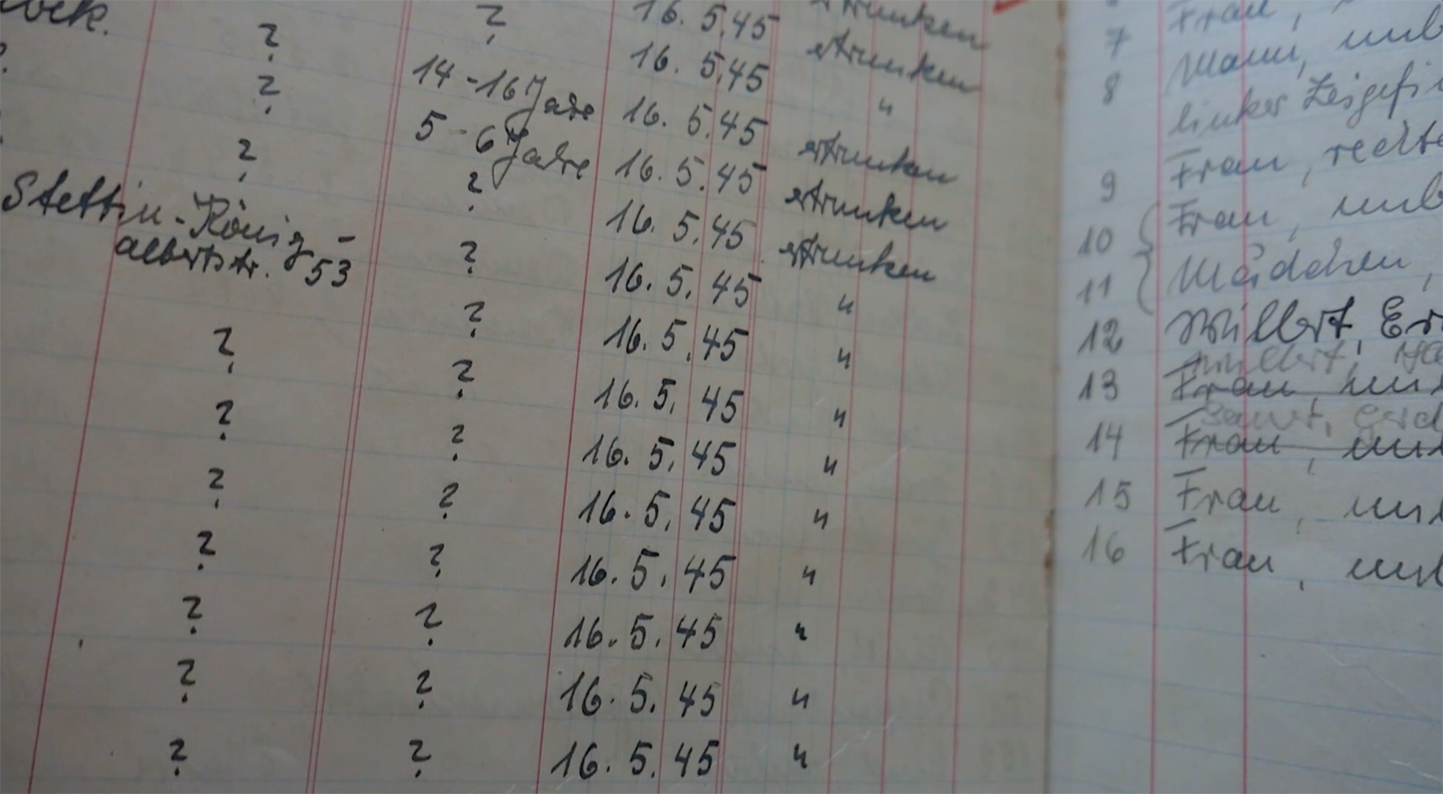 ? 16.5.45 ertrunken
? 14-16 Jahre 16.5.45 ertrunken
? 5-6 Jahre 16.5.45 "
? ? 16.5.45 ertrunken
Stettin-König-
albertstr. 53
? 16.5.45 ertrunken
? 16.5.45 ertrunken
? ? 16.5.45 "
? ? 16.5.45 "
? ? 16.5.45 "
? ? 16.5.45 "
? ? 16.5.45 "
? ? 16.5.45 "
? ? 16.5.45 "
? ? 16.5.45 "
7 Frau,
8 Mann, unb
linker Zeigefi
9 Frau, rechte
10 Frau, unb
11 Mädchen,
12 Willert, Er
13 Frau, unb
14 Frau, unb
15 Frau, unb
16 Frau, unb